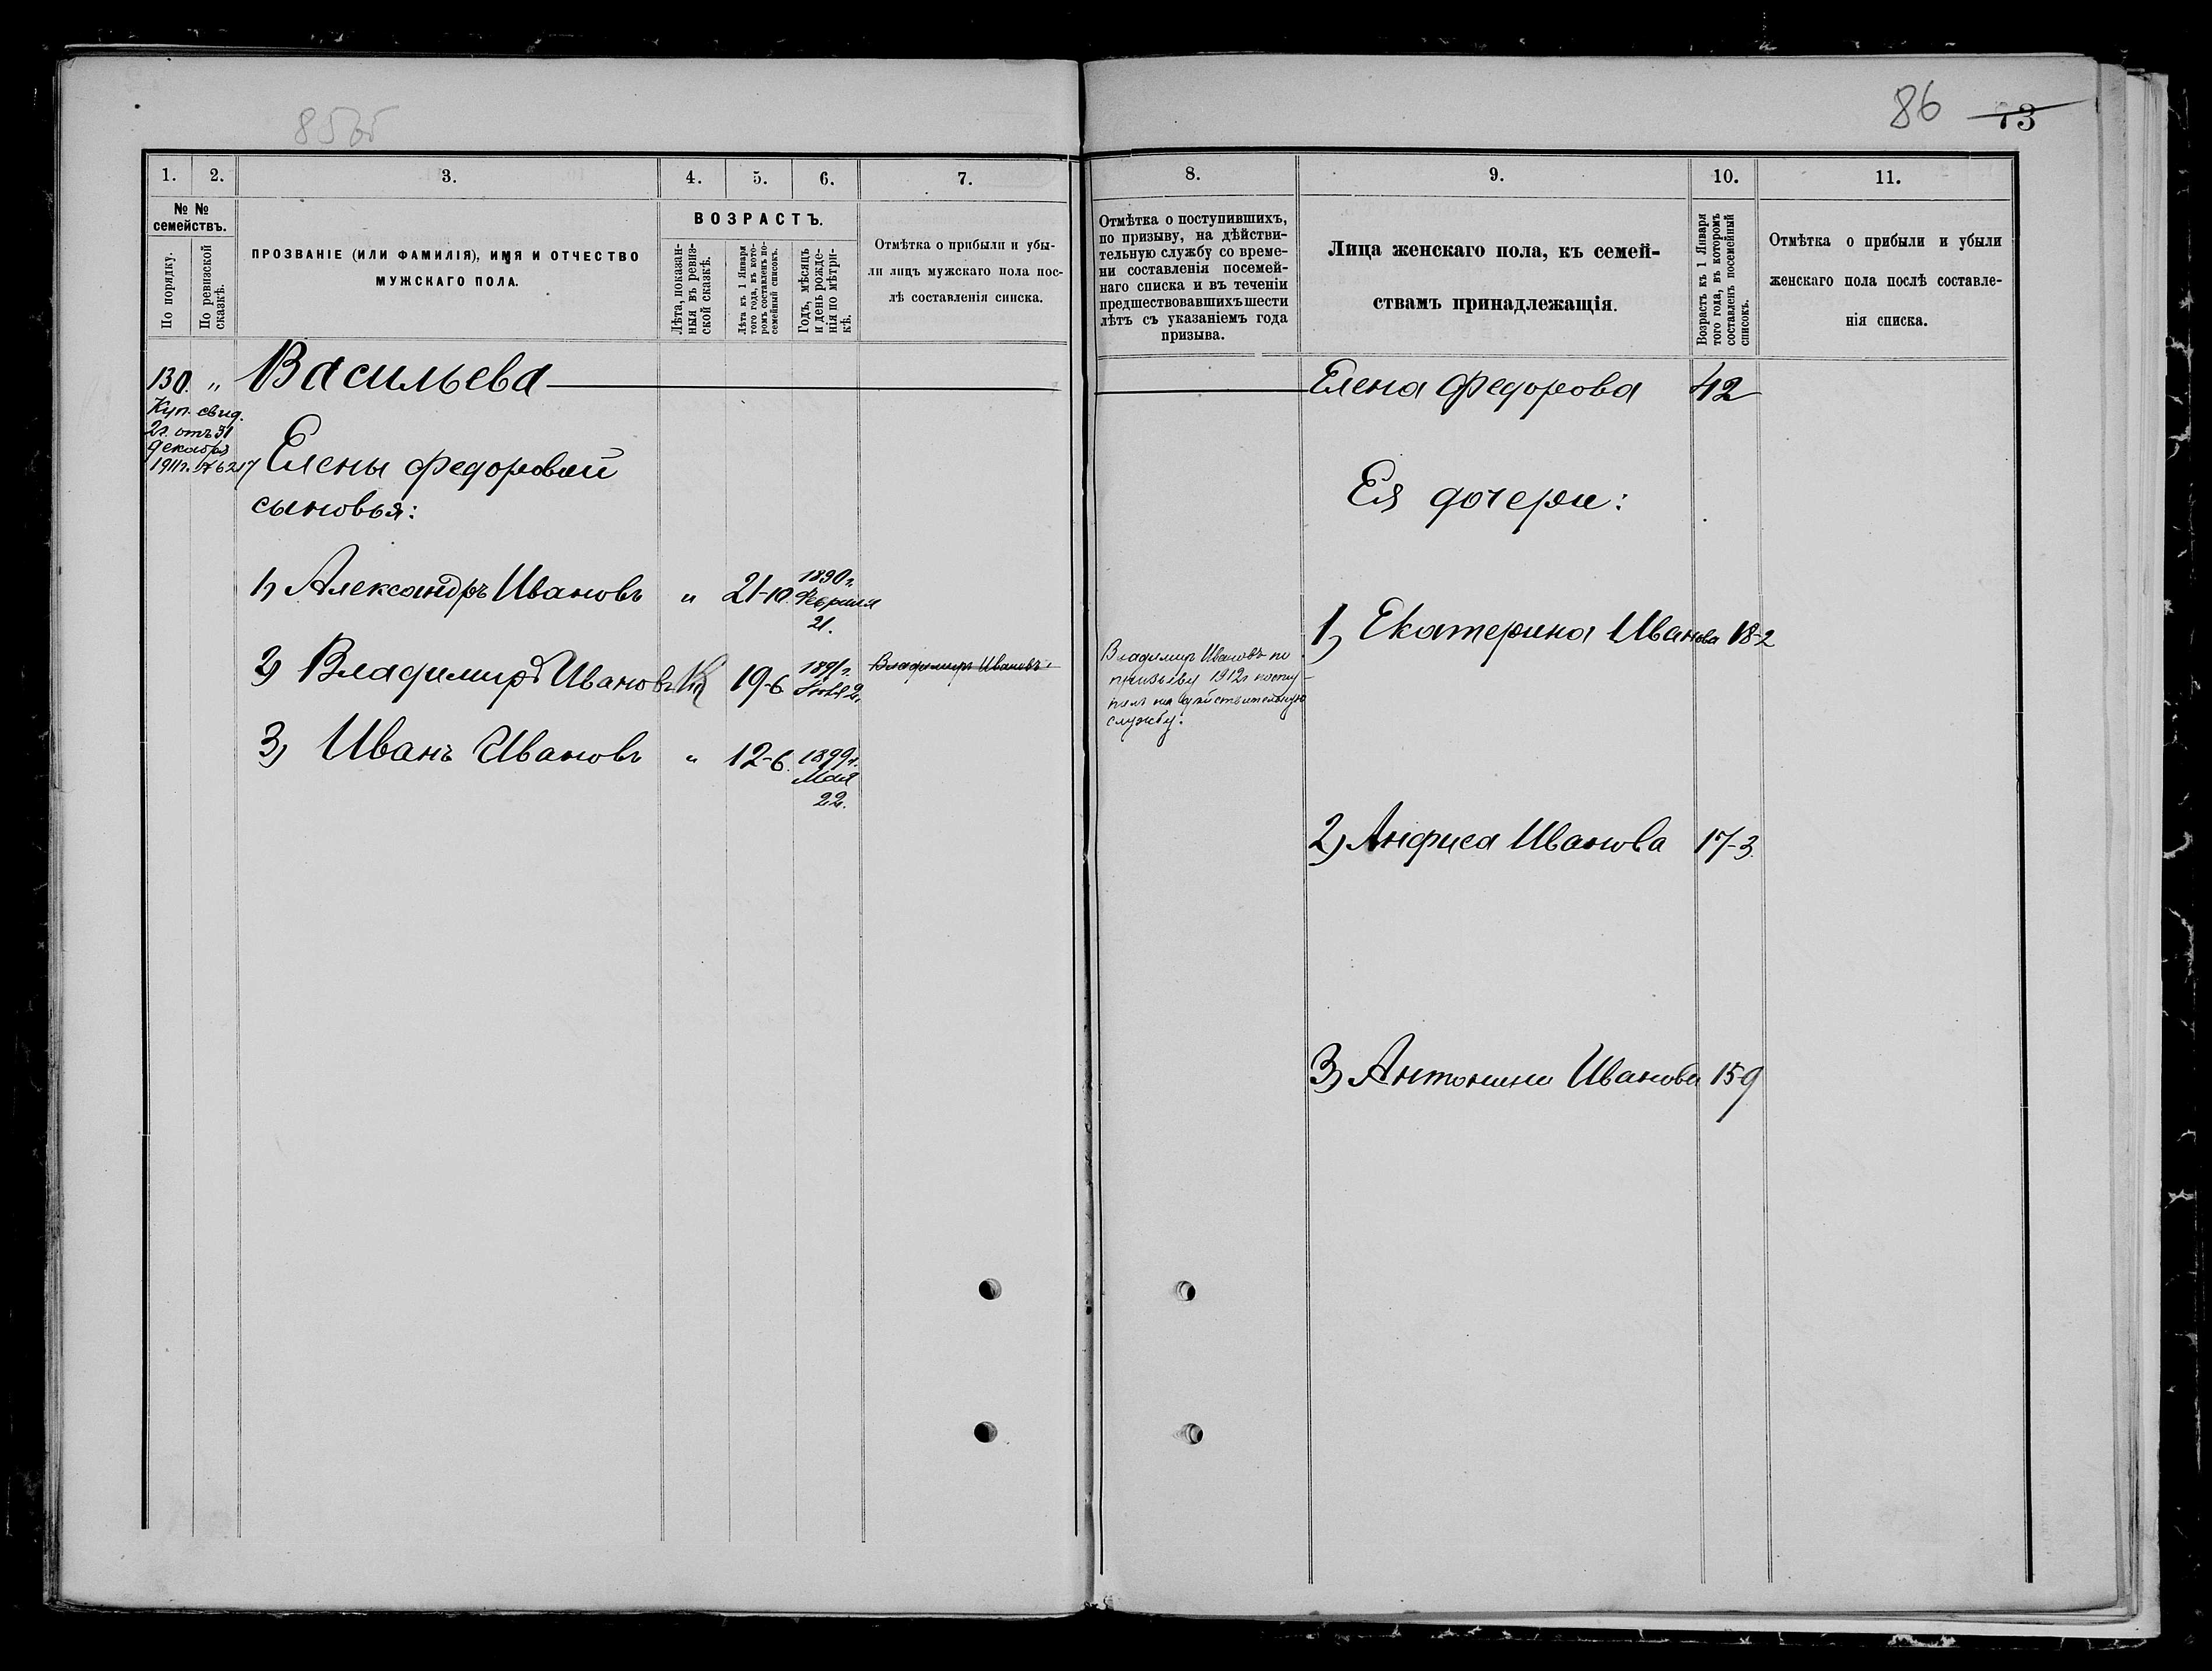 85об
86 73
1. 2. 3. 4. 5. 6. 7.
№ №
семействъ.
По порядку.
По ревизской
сказкѣ.
ПРОЗВАНІЕ (ИЛИ ФАМИЛІЯ), ИМЯ И ОТЧЕСТВО
МУЖСКАГО ПОЛА.
ВОЗРАСТЪ.
Лѣта, показан-
ныя въ ревиз-
ской сказкѣ.
Лѣта къ 1 Января
того года, въ кото-
ромъ составленъ по-
семейный списокъ.
Годъ, мѣсяцъ
и день рожде-
нія по мѣтри-
кѣ.
Отмѣтка о прибыли и убы-
ли лицъ мужскаго пола пос-
лѣ составленія списка.
130. „ Васильева
Куп. свид.
2г. отъ 31
декабря
1911г. № 6217
Елены Федоровой
сыновья:
1) Александръ Ивановъ „ 21-10. 1890г.
Февраля
21.
2) Владимиръ Ивановъ 19-6 1891г. Владимиръ Ивановъ
3) Иванъ Ивановъ „ 12-6. 1899г.
Мая
22.
8. 9. 10. 11.
Отмѣтка о поступившихъ,
по призыву, на дѣйстви-
тельную службу со време-
ни составленія посемей-
наго списка и въ теченіи
предшествовавшихъ шести
лѣтъ съ указаніемъ года
призыва.
Лица женскаго пола, къ семей-
ствамъ принадлежащія.
Возрастъ къ 1 Января
того года, въ которомъ
составленъ посемейный
списокъ.
Отмѣтка о прибыли и убыли
женскаго пола послѣ составле-
нія списка.
Елена Федорова 42
Ея дочери:
1) Екатерина Иванова 18-2
Владимир Ивановъ по
призыву 1912г посту-
пилъ на дѣйствительную
службу.
2) Анфиса Иванова 17-3.
3) Антонина Иванова 15-9